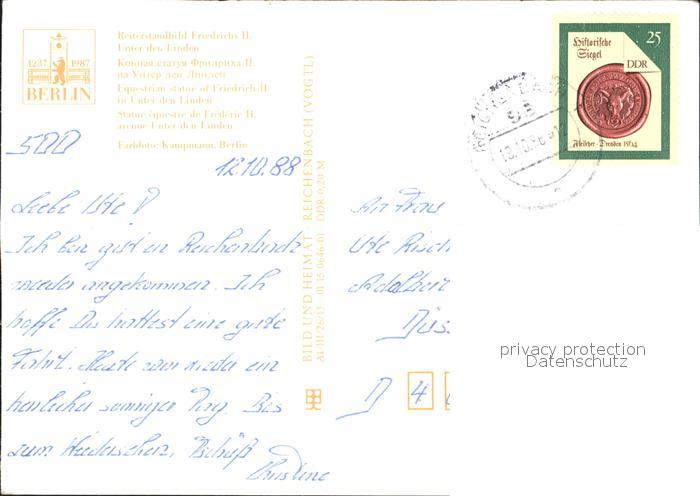 1237 1987
BERLIN
Reiterstandbild Friedrichs II.
Unter den Linden
Конная статуя Фридриха II.
на Унтер ден Линден
Equestrian statue of Friedrich II
in Unter den Linden
Statue équestre de Frédéric II,
avenue Unter den Linden
Farbfoto: Kampmann, Berlin
Historische
Siegel
25
DDR
Fleischer · Dresden 1564
98
500
12.10.88
Liebe Ute!
Ich bin gut in Reichenbach
wieder angekommen. Ich
hoffe Du hattest eine gute
Fahrt. Heute war wieder ein
herrlicher sonniger Tag. Bis
zum Wiedersehen, Tschüß
Christine
BILD UND HEIMAT REICHENBACH (VOGTL)
A1/III/26/13 01 15 0646/01 DDR 0,20 M
An Frau
Ute
Adalbert
Düss
D 4
privacy protection
Datenschutz